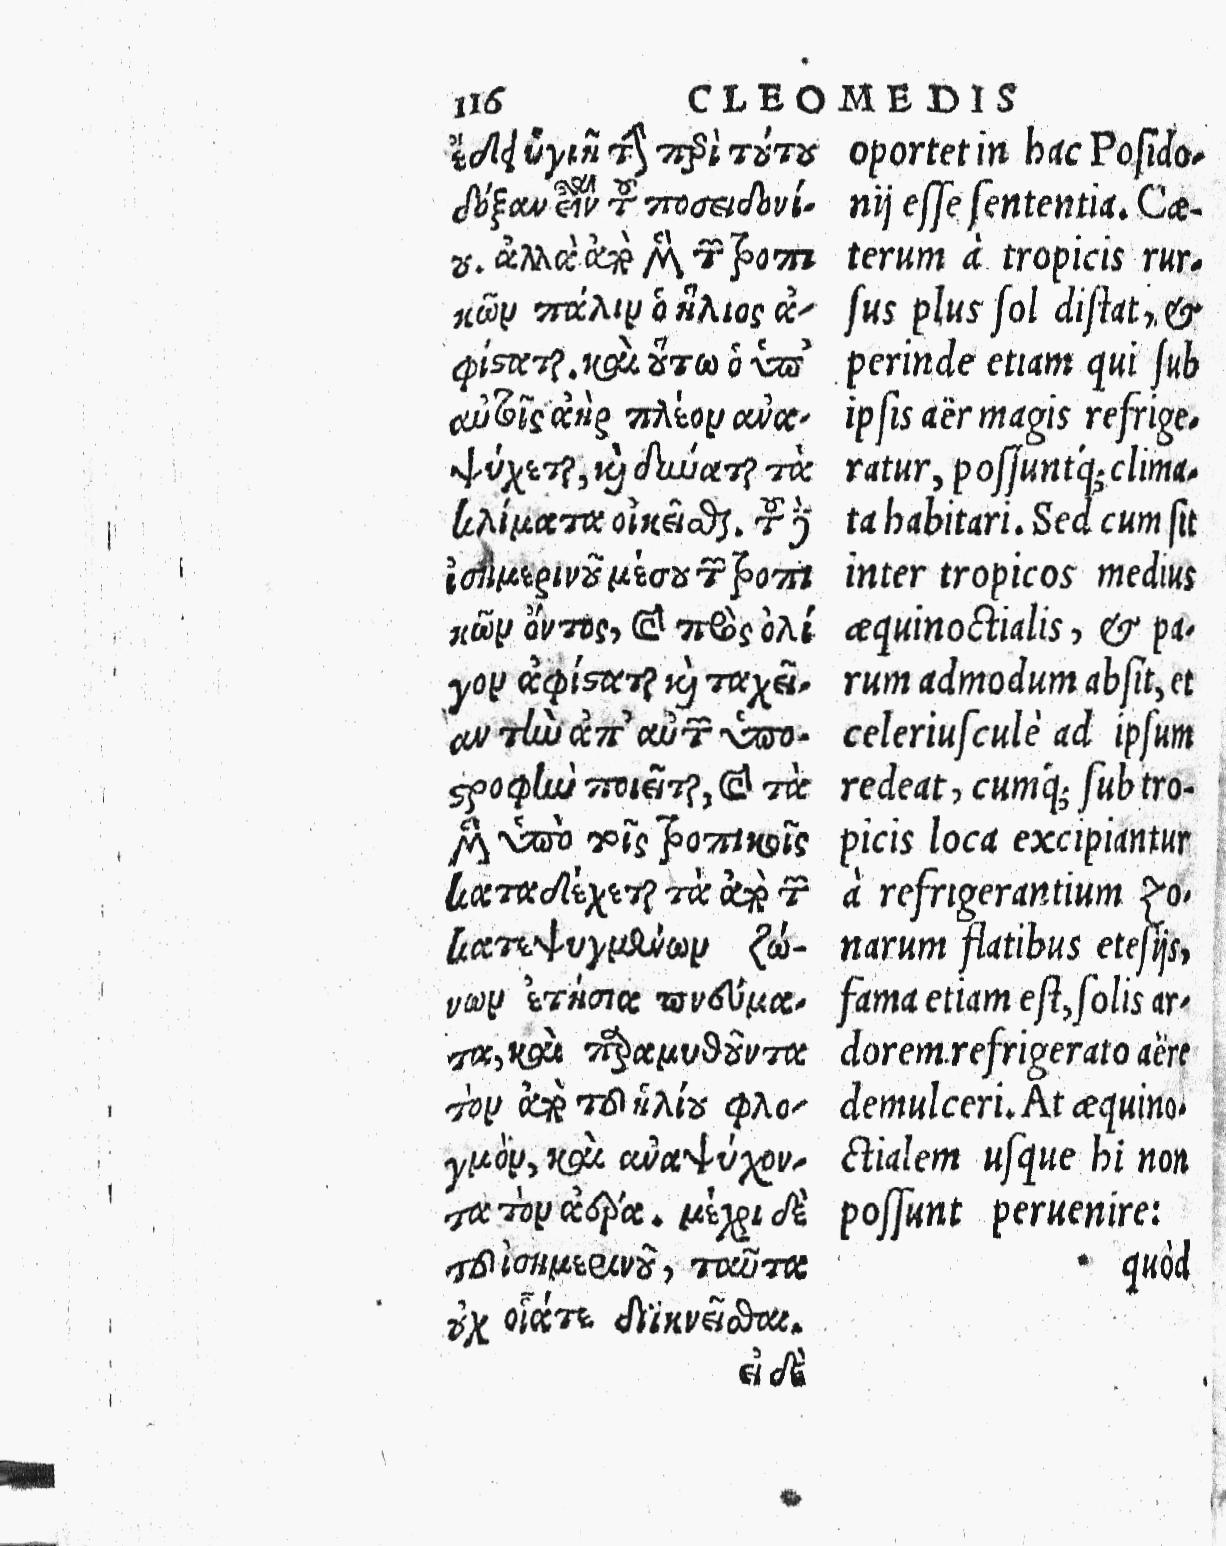 116 CLEOMEDIS
ἔδει ὑγιῆ τὴν περὶ τούτου
δόξαν εἶναι τοῦ ποσειδωνί-
ου. ἀλλὰ ἀπὸ μὲν τῶν τροπι
κῶν πάλιν ὁ ἥλιος ἀ-
φίσταται. καὶ οὕτω ὁ ὑπ'
αὐτοῖς ἀὴρ πλέον ἀνα-
ψύχεται, καὶ δύναται τὰ
κλίματα οἰκεῖσθαι. τοῦ δὲ
ἰσημερινοῦ μέσου τῶν τροπι
κῶν ὄντος, καὶ πρὸς ὀλί
γον ἀφίσταται καὶ ταχεῖ-
αν τὴν ἀπ' αὐτῶν ὑπο-
στροφὴν ποιεῖται, καὶ τὰ
μὲν ὑπὸ τοῖς τροπικοῖς
καταδέχεται τὰ ἀπὸ τῶν
κατεψυγμένων ζώ-
νων ἐτήσια πνεύμα-
τα, καὶ παραμυθοῦντα
τὸν ἀπὸ τοῦ ἡλίου φλο-
γμὸν, καὶ ἀναψύχον-
τα τὸν ἀέρα. μέχρι δὲ
τοῦ ἰσημερινοῦ, ταῦτα
οὐχ οἷάτε διϊκνεῖσθαι.
εἰ δὲ
oportet in hac Posido-
nij esse sententia. Cæ-
terum à tropicis rur-
sus plus sol distat, &
perinde etiam qui sub
ipsis aër magis refrige-
ratur, possuntq́; clima-
ta habitari. Sed cum sit
inter tropicos medius
æquinoctialis, & pa-
rum admodum absit, et
celeriusculè ad ipsum
redeat, cumq́; sub tro-
picis loca excipiantur
à refrigerantium zo-
narum flatibus etesijs,
fama etiam est, solis ar-
dorem refrigerato aëre
demulceri. At æquino-
ctialem usque hi non
possunt peruenire:
quòd